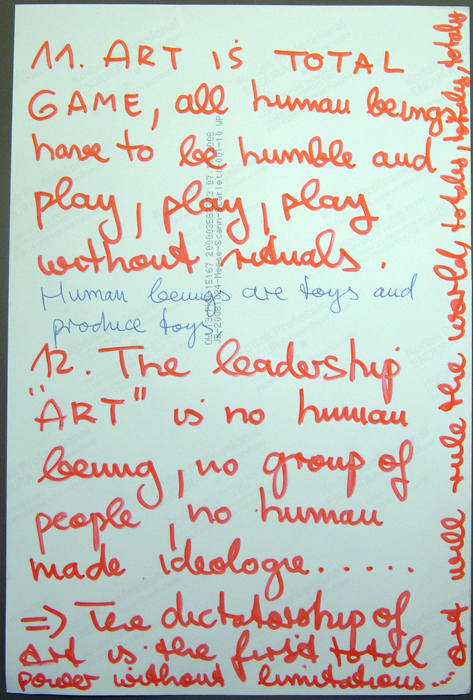 11. ART IS TOTAL
GAME, all human beings
have to be humble and
play, play, play
without rituals.
Human beings are toys and
produce toys.
12. The leadership
"ART" is no human
being, no group of
people, no human
made ideologie......
=> The dictatorship of
Art is the first total
power without limitations...
Art will rule the world totaly, totaly, totaly